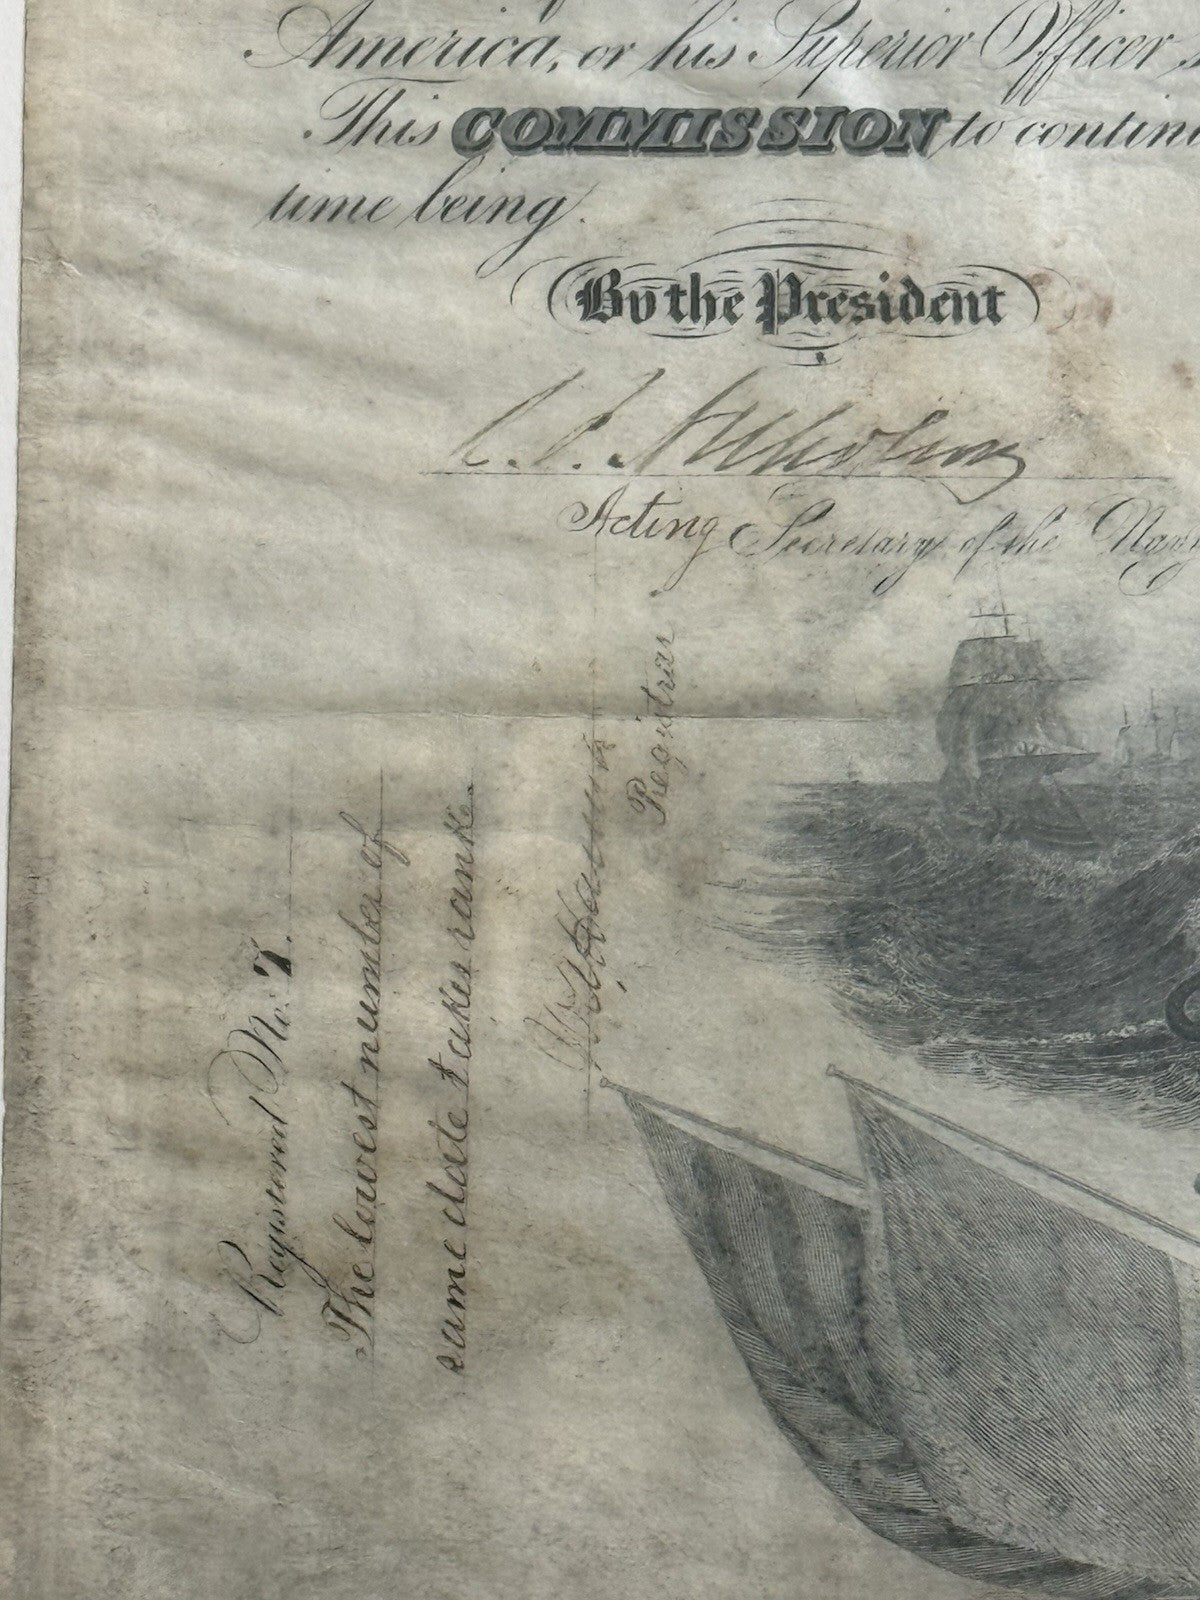 America, or his Superior Officer
This COMMISSION to contin
time being.
By the President
Acting Secretary of the Navy
Registered No. 7.
The lowest number of
same date takes rank.
Registrar